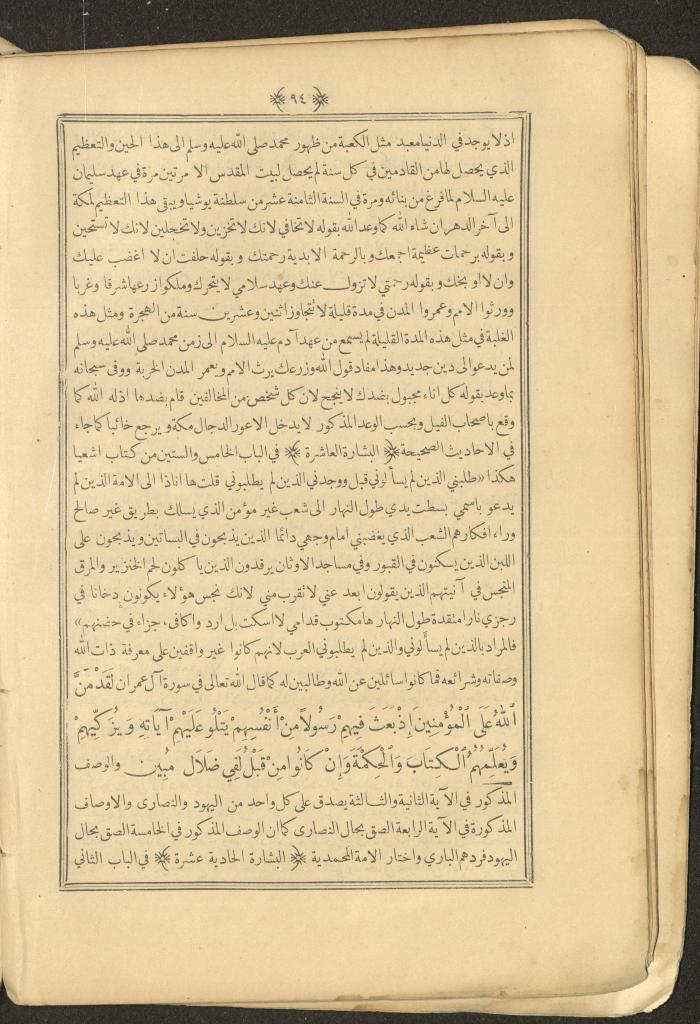 ٩٤
اذ لا يوجد في الدنيا معبد مثل الكعبة من ظهور محمد صلى الله عليه وسلم الى هذا الحين والتعظيم
الذي يحصل لها من القادمين في كل سنة لم يحصل لبيت المقدس الا مرتين مرة في عهد سليمان
عليه السلام لما فرغ من بنائه ومرة في السنة الثامنة عشر من سلطنة يوشيا ويبقى هذا التعظيم لمكة
الى آخر الدهر ان شاء الله كما وعد الله بقوله لا تخافي لانك لا تخزين ولا تخجلين لانك لا تستحين
وبقوله برحمات عظيمة اجمعك وبالرحمة الابدية رحمتك وبقوله حلفت ان لا اغضب عليك
وان لا اوبخك وبقوله رحمتي لا تزول عنك وعهد سلامي لا يتحرك وملكوا زرعها شرقا وغربا
وورثوا الامم وعمروا المدن في مدة قليلة لا تتجاوز اثنين وعشرين سنة من الهجرة ومثل هذه
الغلبة في مثل هذه المدة القليلة لم يسمع من عهد آدم عليه السلام الى زمن محمد صلى الله عليه وسلم
لمن يدعو الى دين جديد وهذا مفاد قول الله وزرعك يرث الامم ويعمر المدن الخربة ووفى سبحانه
بما وعد بقوله كل اناء مجبول بضدك لا ينجح لان كل شخص من المخالفين قام بضدها اذله الله كما
وقع باصحاب الفيل وبحسب الوعد المذكور لا يدخل الاعور الدجال مكة ويرجع خائبا كما جاء
في الاحاديث الصحيحة ﴿ البشارة العاشرة ﴾ في الباب الخامس والستين من كتاب اشعيا
هكذا «طلبني الذين لم يسألوني قبل ووجدني الذين لم يطلبوني قلت ها اناذا الى الامة الذين لم
يدعو باسمي بسطت يدي طول النهار الى شعب غير مؤمن الذي يسلك بطريق غير صالح
وراء افكارهم الشعب الذي يغضبني امام وجهي دائما الذين يذبحون في البساتين ويذبحون على
اللبن الذين يسكنون في القبور وفي مساجد الاوثان يرقدون الذين ياكلون لحم الخنزير والمرق
المنجس في آنيتهم الذين يقولون ابعد عني لا تقرب مني لانك نجس هؤلاء يكونون دخانا في
رجزي نارا متقدة طول النهار ها مكتوب قدامي لا اسكت بل ارد واكافى، جزاء في حضنهم»
فالمراد بالذين لم يسألوني والذين لم يطلبوني العرب لانهم كانوا غير واقفين على معرفة ذات الله
وصفاته وشرائعه فما كانوا سائلين عن الله وطالبين له كما قال الله تعالى في سورة آل عمران لَقَدْ مَنَّ
اللهُ عَلَى الْمُؤْمِنِينَ إِذْ بَعَثَ فِيهِمْ رَسُولاً مِنْ أَنْفُسِهِمْ يَتْلُو عَلَيْهِمْ آيَاتِهِ وَيُزَكِّيهِمْ
وَيُعَلِّمُهُمُ الْكِتَابَ وَالْحِكْمَةَ وَإِنْ كَانُوا مِنْ قَبْلُ لَفِي ضَلَالٍ مُبِينٍ والوصف
المذكور في الآية الثانية والثالثة يصدق على كل واحد من اليهود والنصارى والاوصاف
المذكورة في الآية الرابعة الصق بحال النصارى كما ان الوصف المذكور في الخامسة الصق بحال
اليهود فردهم الباري واختار الامة المحمدية ﴿ البشارة الحادية عشرة ﴾ في الباب الثاني